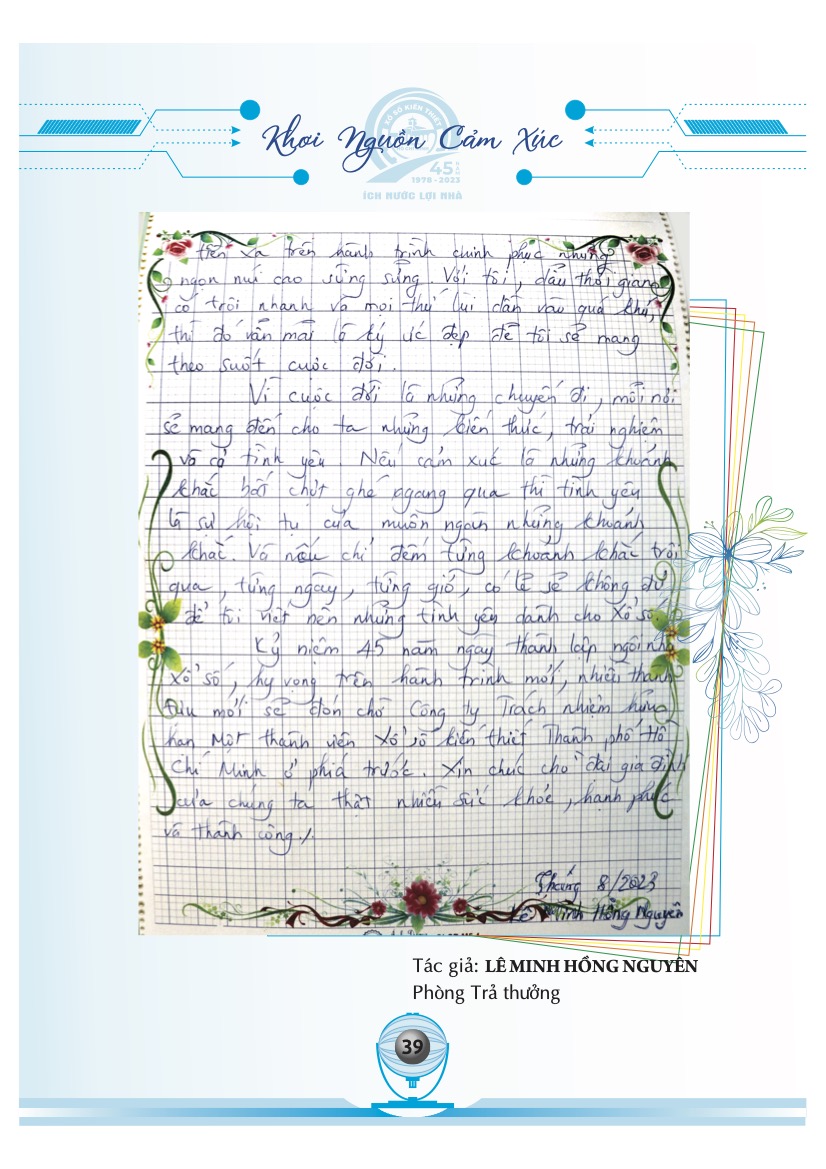 Khơi Nguồn Cảm Xúc
XỔ SỐ KIẾN THIẾT
45 NĂM
1978 - 2023
ÍCH NƯỚC LỢI NHÀ
tiến xa trên hành trình chinh phục những
ngọn núi cao sừng sững. Với tôi, dẫu thời gian
có trôi nhanh và mọi thứ lùi dần vào quá khứ,
thì đó vẫn mãi là ký ức đẹp để tôi sẽ mang
theo suốt cuộc đời.
Vì cuộc đời là những chuyến đi, mỗi nơi
sẽ mang đến cho ta những kiến thức, trải nghiệm
và cả tình yêu. Nếu cảm xúc là những khoảnh
khắc bất chợt ghé ngang qua thì tình yêu
là sự hội tụ của muôn ngàn những khoảnh
khắc. Và nếu chỉ đếm từng khoảnh khắc trôi
qua, từng ngày, từng giờ, có lẽ sẽ không đủ
để tôi viết nên những tình yêu dành cho Xổ số.
Kỷ niệm 45 năm ngày thành lập ngôi nhà
Xổ số, hy vọng trên hành trình mới, nhiều thành
tựu mới sẽ đón chờ Công ty Trách nhiệm hữu
hạn Một thành viên Xổ số kiến thiết Thành phố Hồ
Chí Minh ở phía trước. Xin chúc cho đại gia đình
của chúng ta thật nhiều sức khỏe, hạnh phúc
và thành công./.
Tháng 8/2023
Lê Minh Hồng Nguyên
Tác giả: LÊ MINH HỒNG NGUYÊN
Phòng Trả thưởng
39